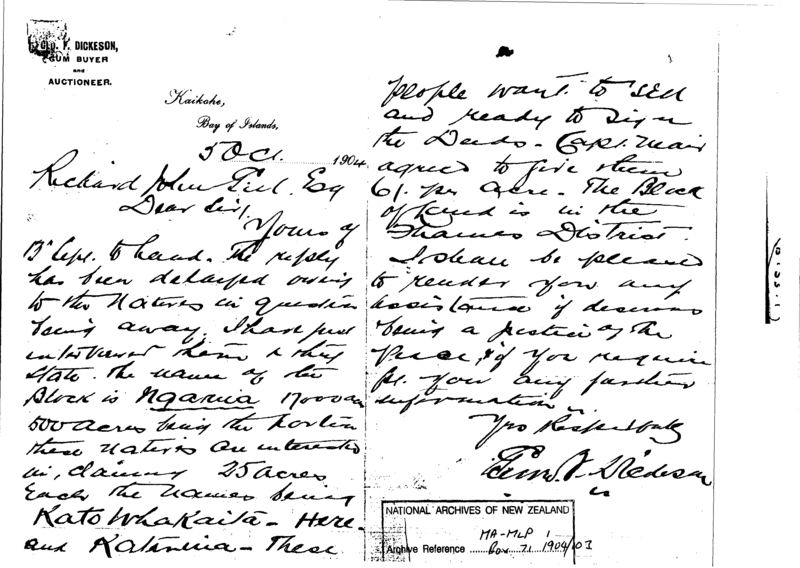 GEO. F. DICKESON,
GUM BUYER
and
AUCTIONEER.
Kaikohe,
Bay of Islands,
5 Oct. 1904
Richard John Gill Esq
Dear Sir,
Yours of
13" Sept. to hand. The reply
has been delayed owing
to the Natives in question
being away. I have just
interviewed them & they
state the name of the
Block is Ngaria 17000
500 acres being the portion
these Natives are interested
in, claiming 25 acres
Each the names being
Kato Whakaita - Here-
and Katarina - These
people want to sell
and ready to sign
the Deeds - Capt. Mair
agreed to give them
6/. per Acre - The Block
of land is in the
Thames District.
I shall be pleased
to render you any
assistance if desirous
being a Justice of the
Peace, & if you require
you any further
information
Yrs Respectfully
Geo. F. Dickeson
NATIONAL ARCHIVES OF NEW ZEALAND
MA-MLP 1
Archive Reference Box 71 1904/103